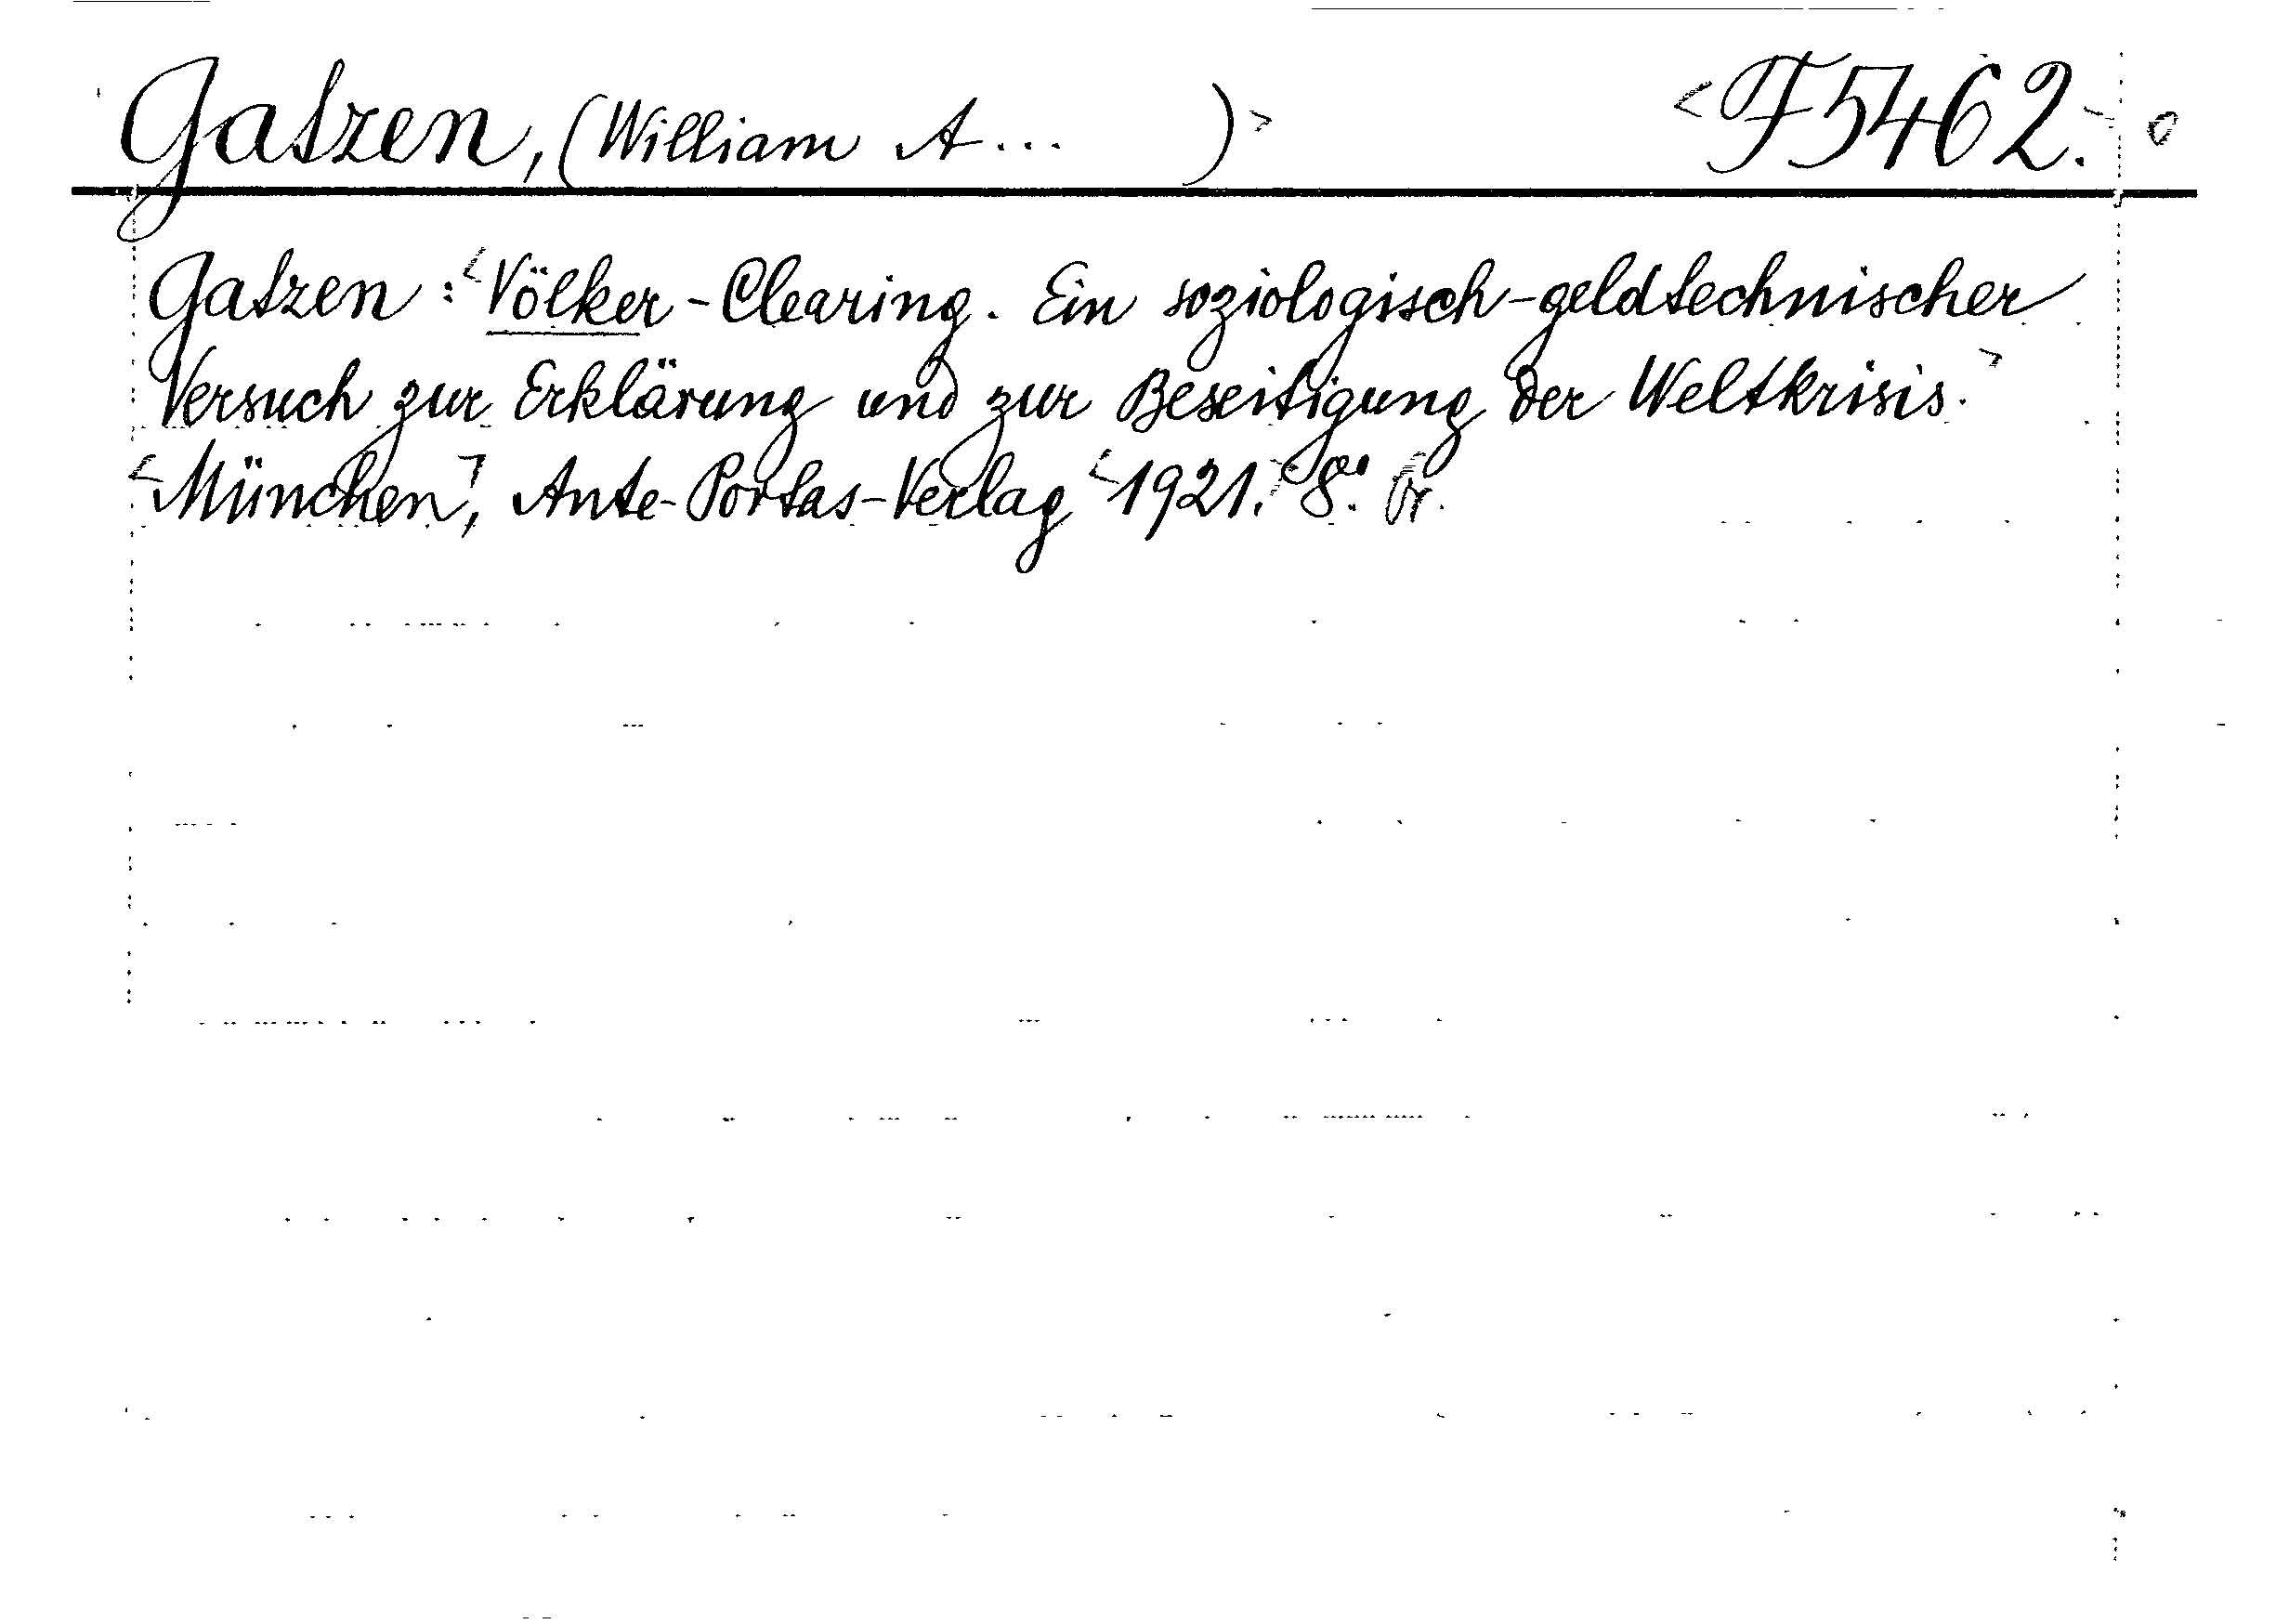 Gatzen, (William A... ) F5462.
Gatzen: Völker-Clearing. Ein soziologisch-geldtechnischer
Versuch zur Erklärung und zur Beseitigung der Weltkrisis.
München, Ante-Portas-Verlag 1921. 8°.